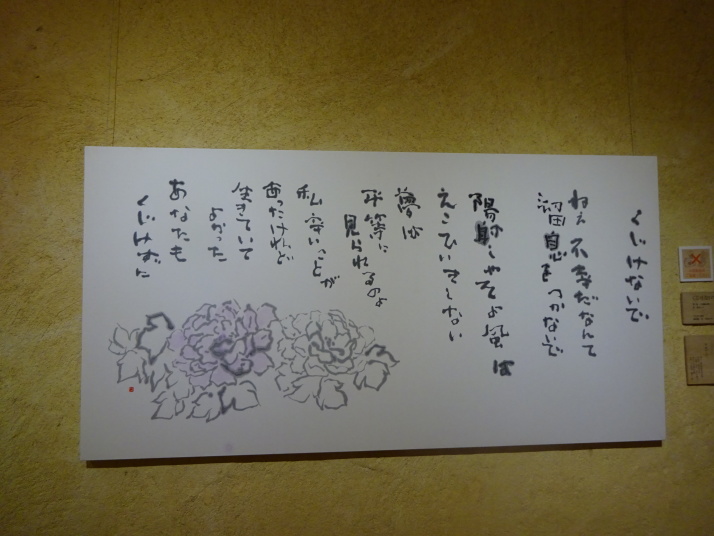 くじけないで
ねぇ 不幸だなんて
溜息をつかないで
陽射しやそよ風は
えこひいきしない
夢は
平等に
見られるのよ
私 辛いことが
あったけれど
生きていて
よかった
あなたも
くじけずに